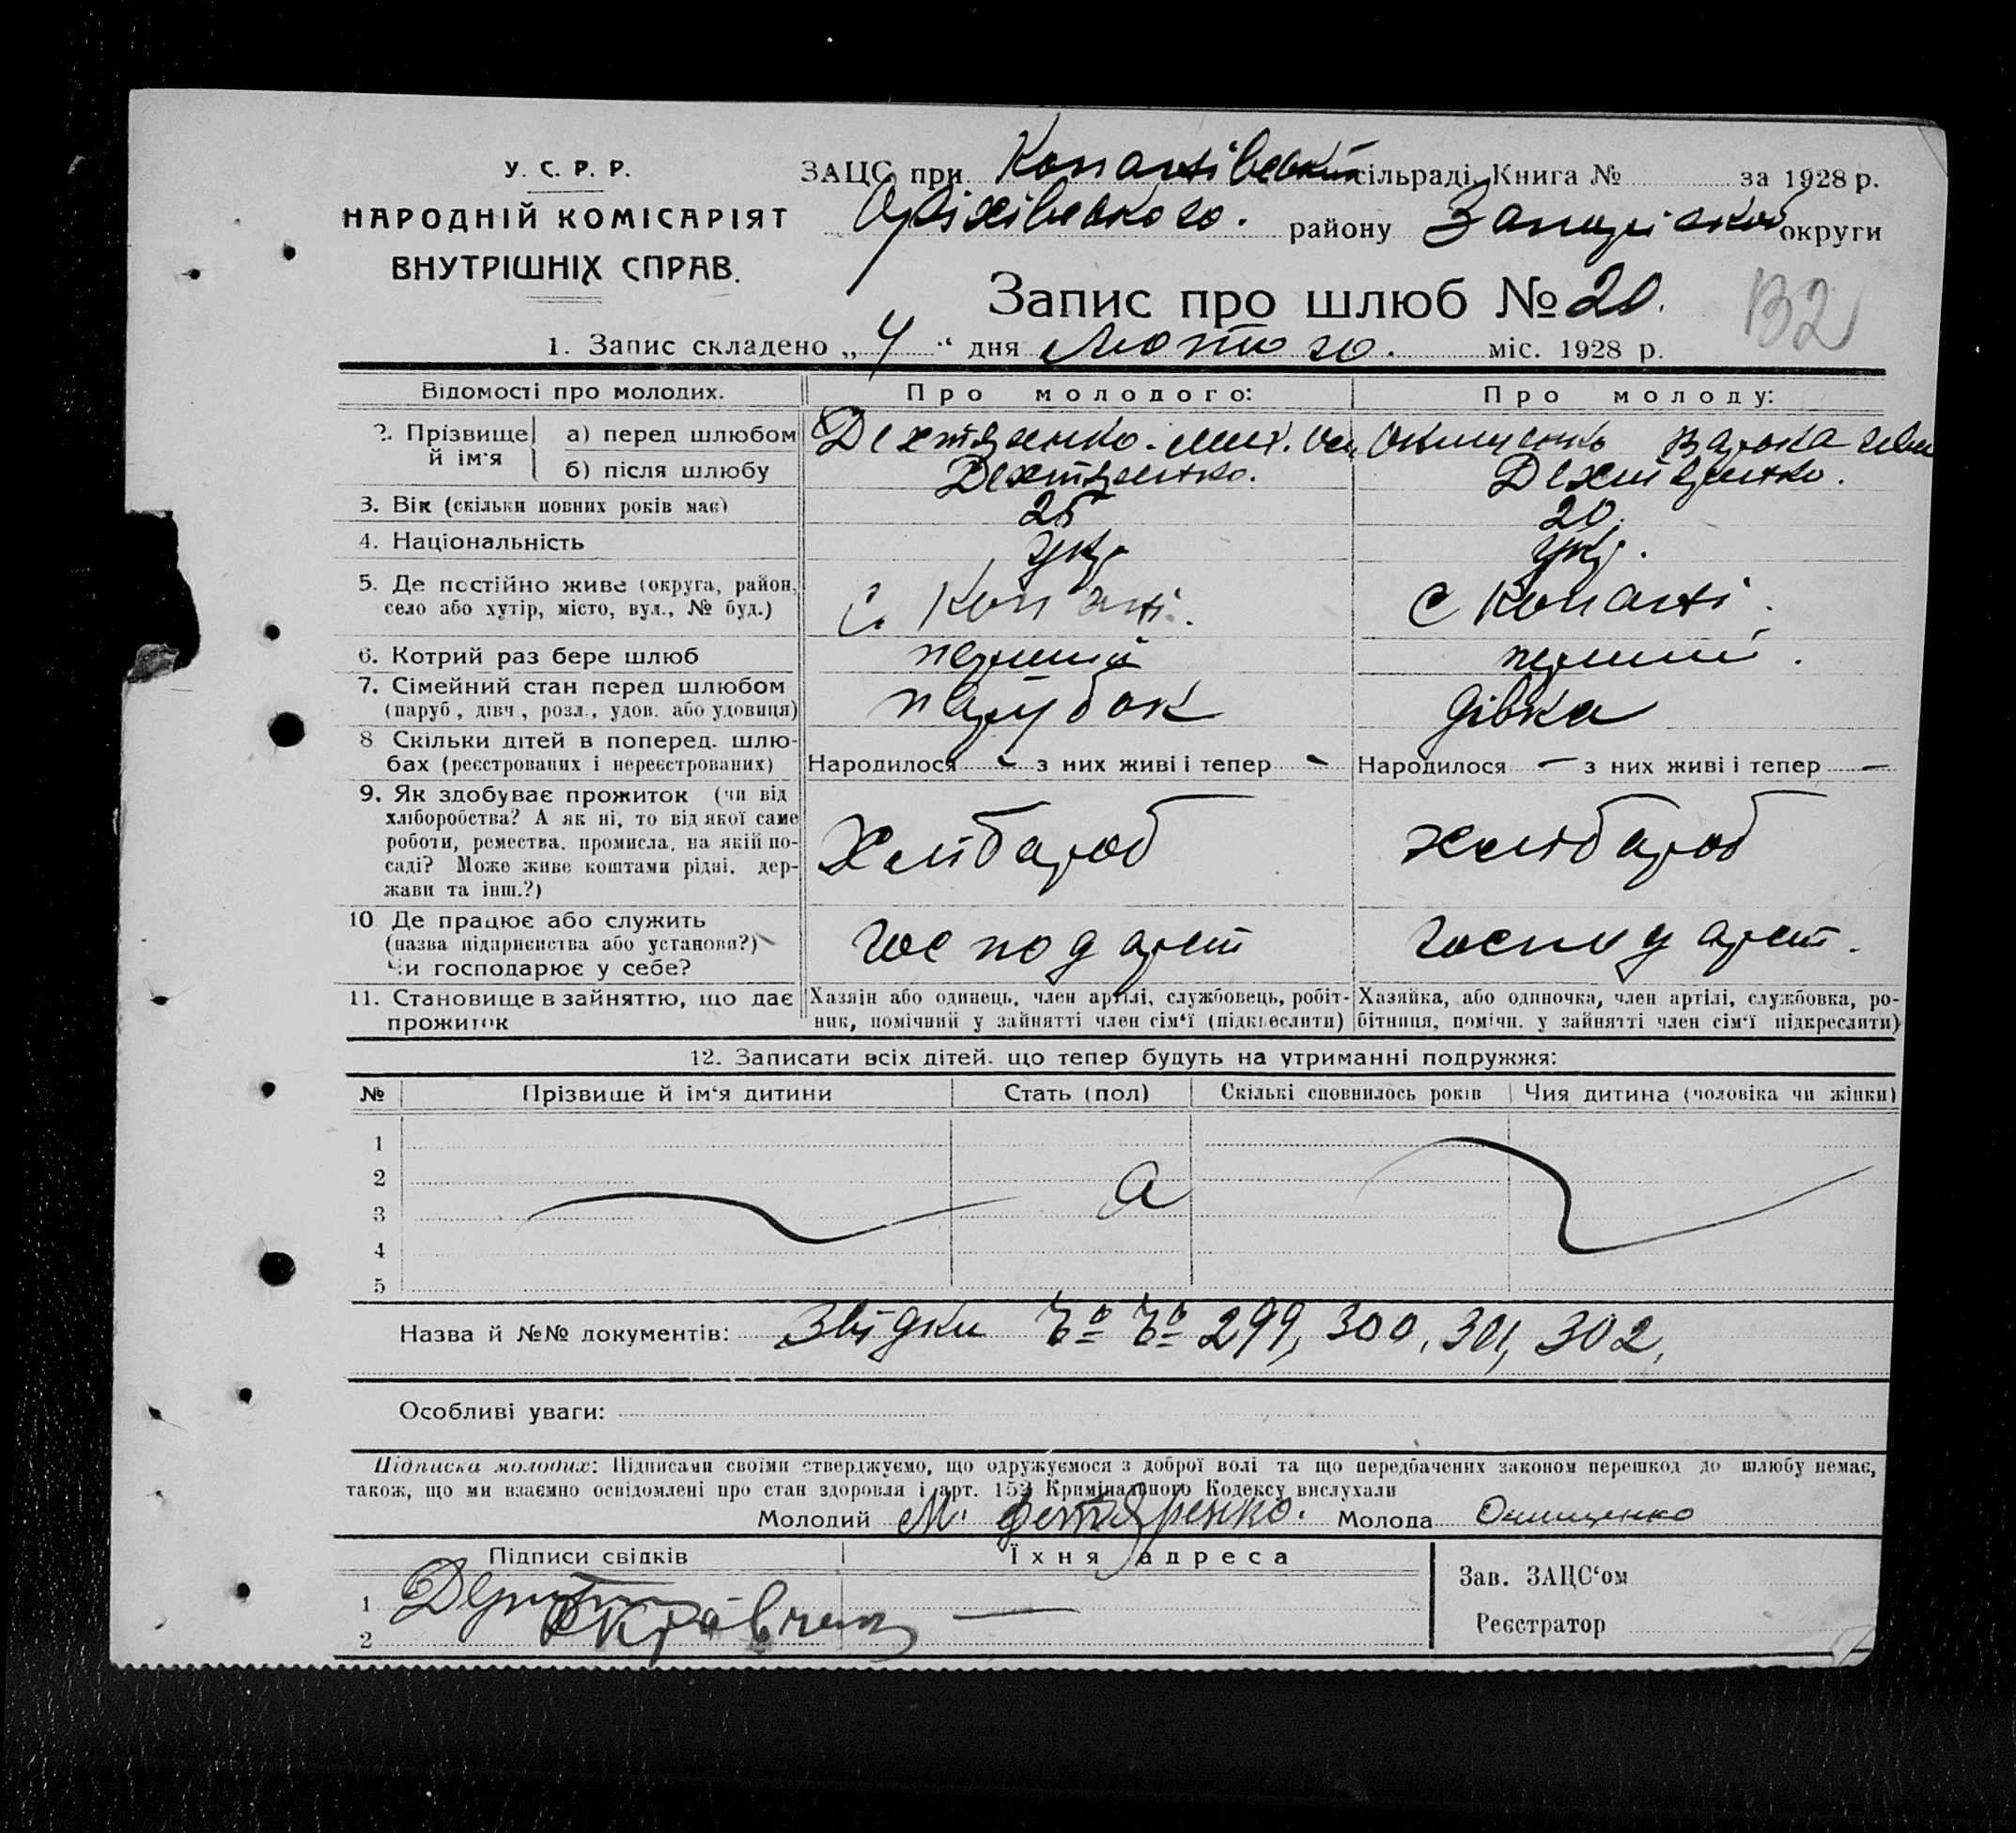 У. С. Р. Р.
НАРОДНІЙ КОМІСАРІЯТ
ВНУТРІШНІХ СПРАВ.
ЗАЦС при Копанівській сільраді. Книга № за 1928 р.
Оріхівського. району Запоріської округи
Запис про шлюб № 20.
132
1. Запис складено „4“ дня Лютого. міс. 1928 р.
Відомості про молодих. Про молодого: Про молоду:
2. Прізвище й ім'я
а) перед шлюбом Дехтяренко. Мих. Онищенко Варка
б) після шлюбу Дехтяренко. Дехтяренко.
3. Вік (скільки повних років має) 25 20.
4. Національність Укр. Укр.
5. Де постійно живе (округа, район,
село або хутір, місто, вул., № буд.) С. Копані. С Копані.
6. Котрий раз бере шлюб перший перший.
7. Сімейний стан перед шлюбом
(паруб, дівч, розл., удов. або удовиця) парубок дівка
8 Скільки дітей в поперед. шлю-
бах (реєстрованих і нереєстрованих) Народилося - з них живі і тепер - Народилося - з них живі і тепер -
9. Як здобуває прожиток (чи від
хліборобства? А як ні, то від якої саме
роботи, ремества, промисла, на якій по-
саді? Може живе коштами рідні, дер-
жави та інш.?)
Хлібароб хлібароб
10 Де працює або служить
(назва підприємства або установи?)
Чи господарює у себе?
господарст господарст.
11. Становище в зайняттю, що дає
прожиток
Хазяін або одинець, член артілі, службовець, робіт-
ник, помічний у зайнятті член сім‘ї (підкреслити)
Хазяйка, або одиночка, член артілі, службовка, ро-
бітниця, помічн. у зайнятті член сім‘ї підкреслити)
12. Записати всіх дітей. що тепер будуть на утриманні подружжя:
№ Прізвище й ім‘я дитини Стать (пол) Скількі сповнилось років Чия дитина (чоловіка чи жінки)
1
2
3
4
5
Назва й №№ документів: Звідки № № 299, 300, 301, 302,
Особливі уваги:
Підписка молодих: Підписами своїми стверджуємо, що одружуємося з доброї волі та що передбачених законом перешкод до шлюбу немає,
також, що ми взаємно освідомлені про стан здоровля і арт. 153 Кримінального Кодексу вислухали
Молодий М. Дехтяренко. Молода Онищенко
Підписи свідків Їхня адреса
Зав. ЗАЦС‘ом
1
2 Кравченко
Реєстратор